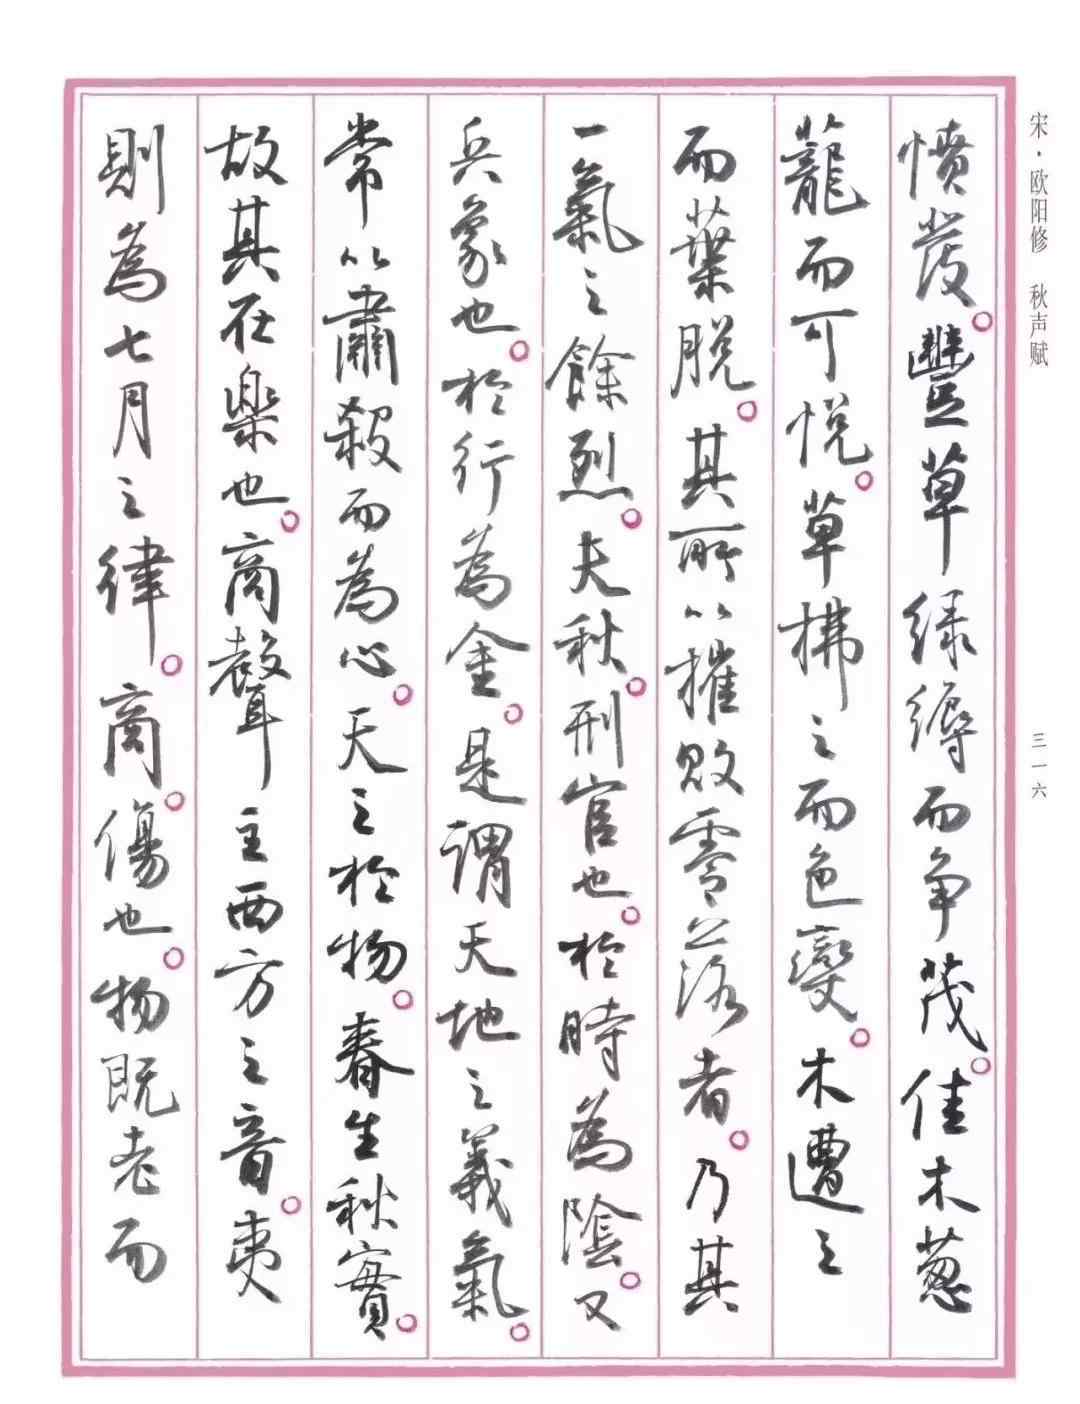 宋·欧阳修 秋声赋
三一六
憤發。豐草緑縟而争茂。佳木葱
蘢而可悦。草拂之而色變。木遭之
而葉脱。其所以摧敗零落者。乃其
一氣之餘烈。夫秋。刑官也。於時為陰。又
兵象也。於行為金。是謂天地之義氣。
常以肅殺而為心。天之於物。春生秋實。
故其在樂也。商聲主西方之音。夷
則為七月之律。商。傷也。物既老而